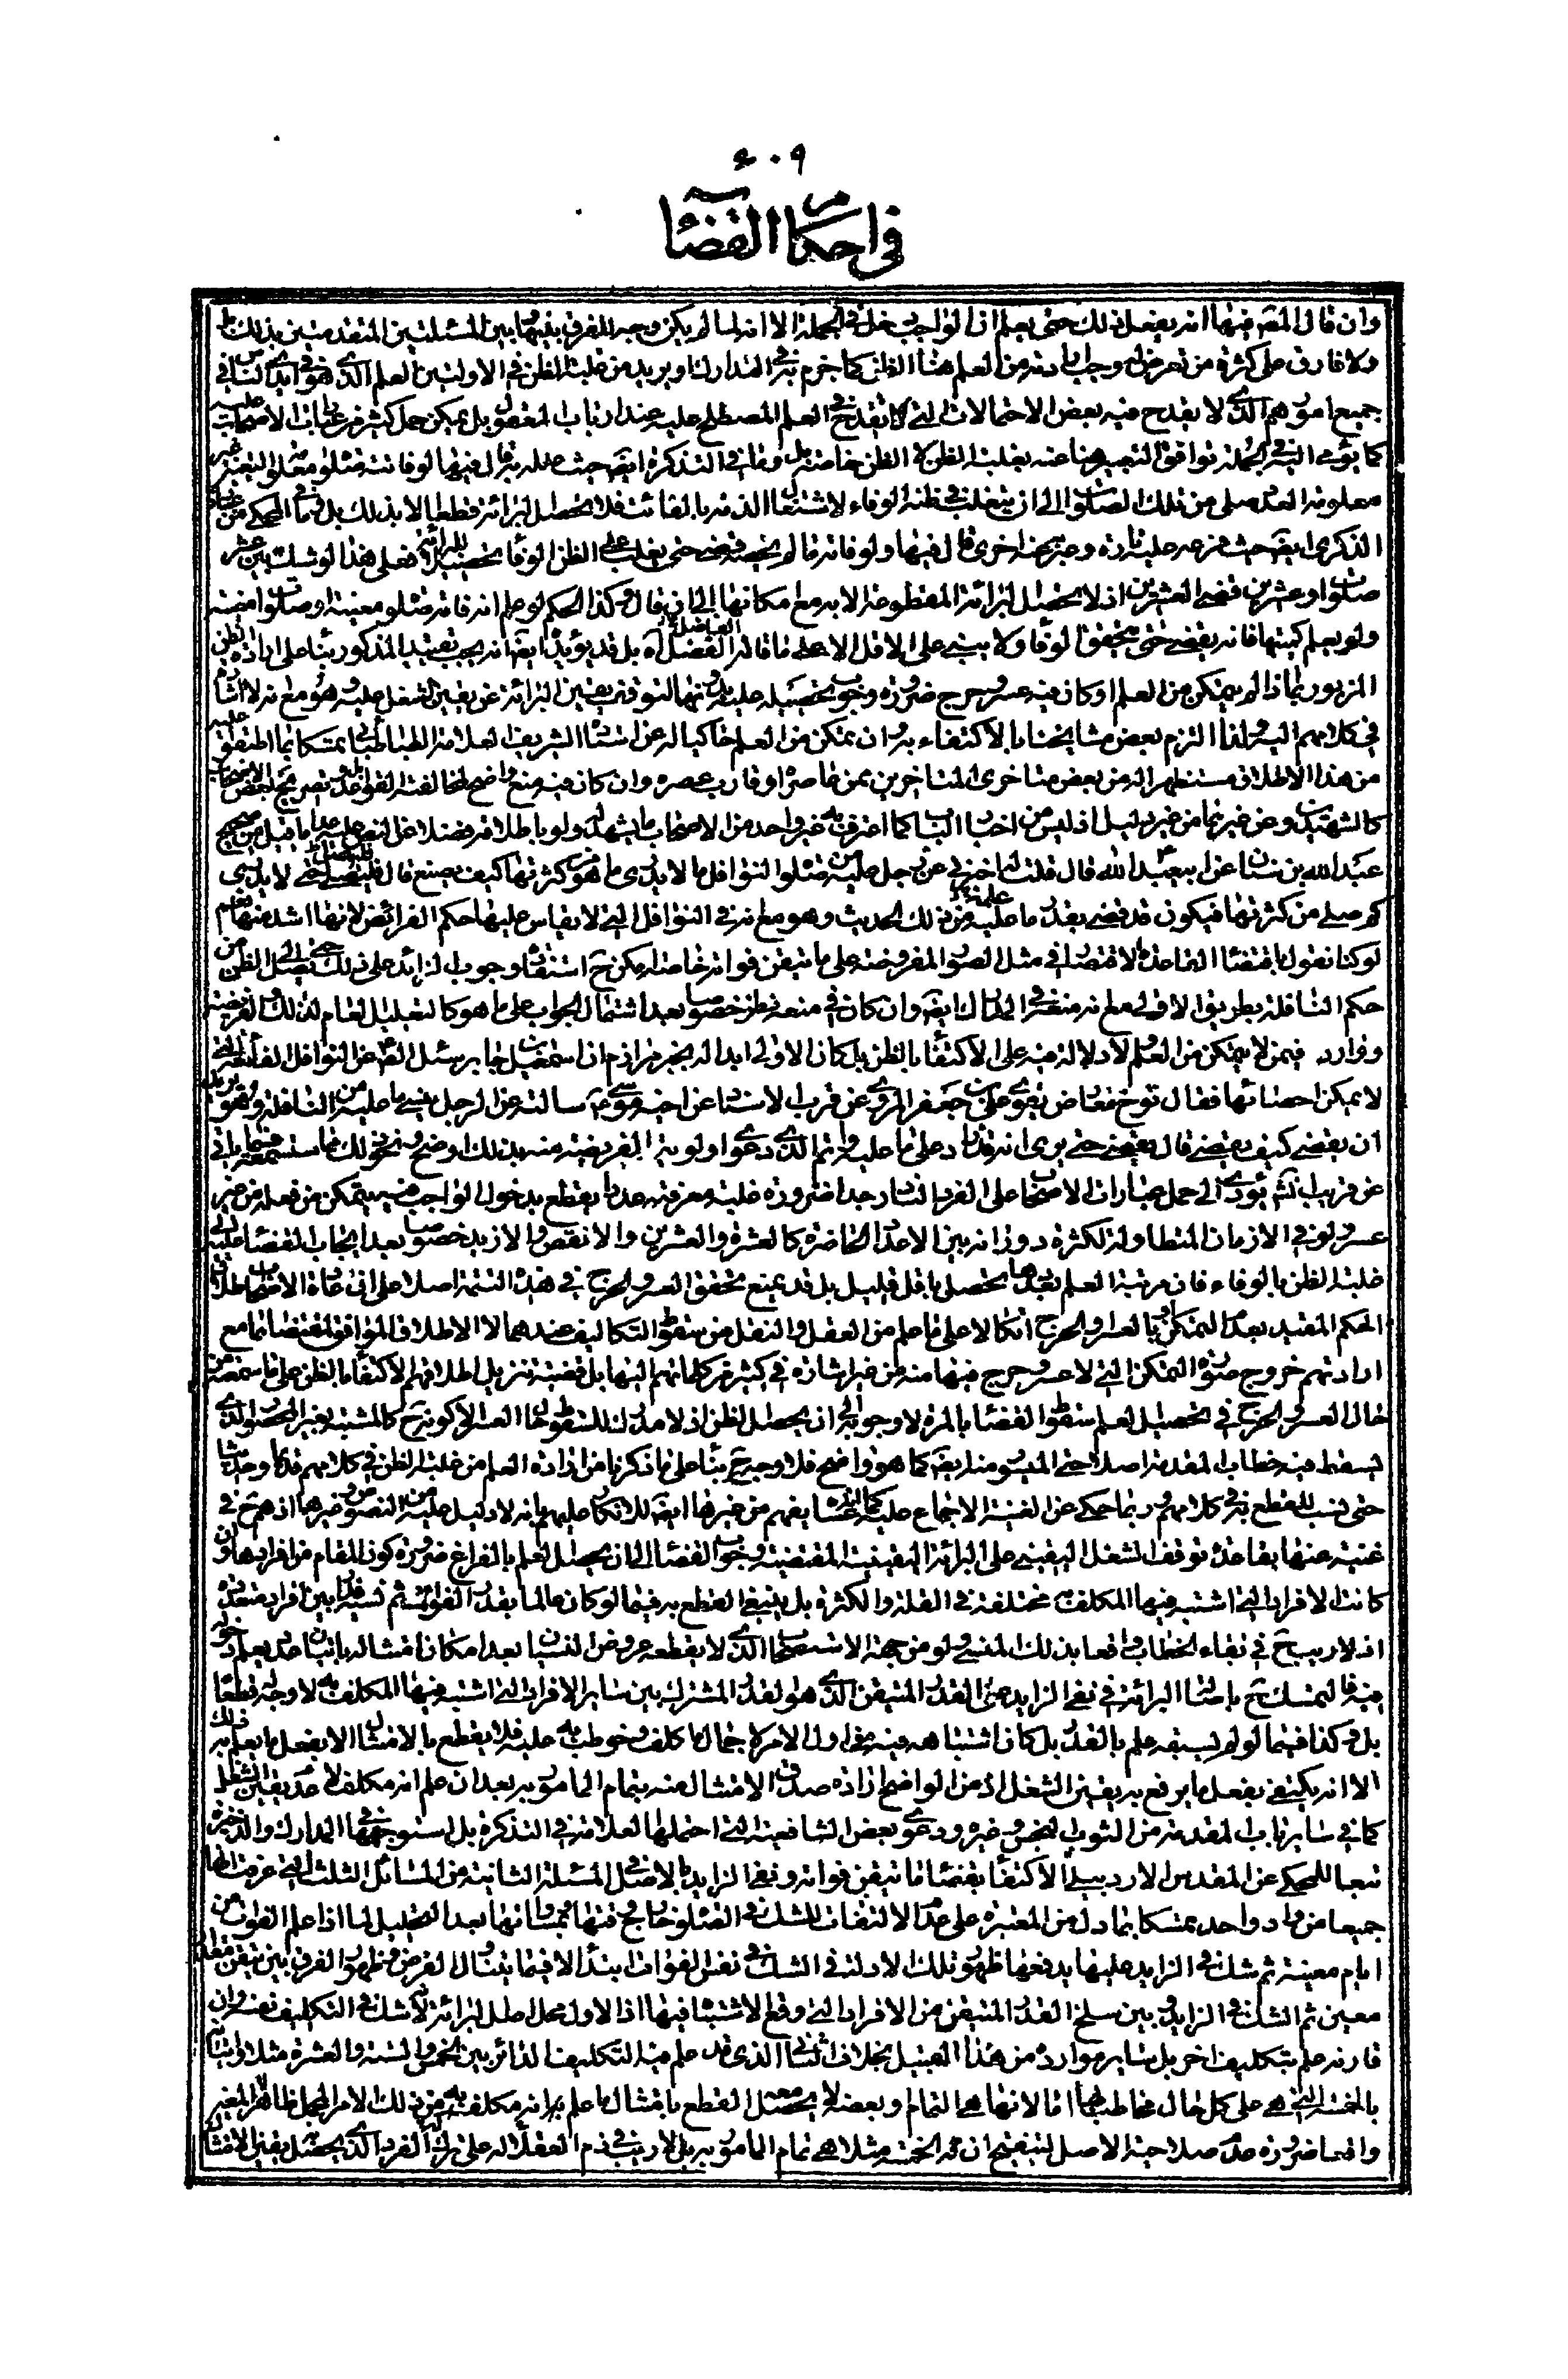 ٤٠٩
في احكام القضاء
وان قال المصنف فيهما انه يفعل ذلك حتى يعلم ان الواجب دخل في الجملة الا انه لما لم يكن وجه للفرق بينهما بين المسئلتين المتقدمتين بذلك
ولا فارق على كثرة من تعرض له وجب ارادته من العلم هنا الظن كما جزم به في المدارك او يريد من غلبة الظن في الاولتين العلم الذي هو في ايدي الناس في
جميع امورهم الذي لا يقدح فيه بعض الاحتمالات التي كانت تقدح في العلم المصطلح عليه عند ارباب المعقول بل يمكن حمل كثير من عبارات الاصحاب عليه
كما يومى اليه في الجملة توافق التعبير هنا عنه بغلبة الظن لا الظن خاصة بل وما في التذكرة ايضا حيث عبر به قال فيها لو فاتته صلوة معلوم التعين غير
معلومة العدد صلى من تلك الصلوات الى ان يتغلب في ظنه الوفاء لاشتغال الذمة بالفائت فلا تحصل البرائة قطعا الا بذلك بل وما المحكي عن
الذكرى ايضا حيث عبر به عليه تارة وعبر عنه اخرى قال فيها ولو فاته ما لم يحصه قضى حتى يغلب على الظن الوفاء تحصيلا للبرائة فعلى هذا لو شك بين عشر
صلوات وعشرين قضى العشرين اذ لا تحصل البرائة المقطوعة الا به مع امكانها الى ان قال وكذا الحكم لو علم انه فاته صلوة معينة او صلوات معينة
ولم يعلم كميتها فانه يقضي حتى يتحقق الوفاء ولا يبني على الاقل الا على ما قاله الفاضل اه بل قد يؤيده ايضا انه يجب تقييد المذكور بناء على ارادة الظن
المزبور بما اذا لم يتمكن من العلم او كان فيه عسر وحرج ضرورة وجوب تحصيله عليه بدونهما لتوقف يقين البرائة عن يقين الشغل عليه وهو مع انه لا اشارة
في كلامهم اليه ولذا التزم بعض مشايخنا بالاكتفاء به وان تمكن من العلم حاكيا له عن استاده الشريف العلامة الطباطبائي متمسكا بما اطنقوا عليه
من هذا الاطلاق مستظهرا له من بعض متاخري المتاخرين ممن عاصره او قارب عصره وان كان فيه منع واضح لمخالفته القواعد بل وتصريح بعض الاصحاب
كالشهيدين وعن غيرهما من غير دليل اذ ليس من اخبار الباب كما اعترف به غير واحد من الاصحاب ما يشهد له ولو باطلاقه فضلا عن النص عليه عدا ما قيل من صحيح
عبد الله بن سنان عن ابي عبد الله قال قلت له اخبرني عن رجل عليه من صلوة النوافل ما لا يدري ما هو من كثرتها كيف يصنع قال فليصل حتى لا يدري
كم صلى من كثرتها فيكون قد قضى بقدر ما عليه من ذلك الحديث وهو مع انه في النوافل التي لا يقاس عليها حكم الفرائض لانها اشد منها نعم
لو كنا نقول باقتضاء القاعدة الاقتصار في مثل الصلوات المفروضة على ما تيقن فواته خاصة لامكن ح استفادة وجوب الزائد على ذلك حتى يصل الى الظن من
حكم النافلة بطريق الاولى مع انه منعه في المدارك ايضا وان كان في منعه نظر خصوصا بعد اشتمال الجواب على ما هو كالتعليل العام لذلك وللفريضة
ووارد فيمن لا يتمكن من العلم لا دلالة فيه على الاكتفاء بالظن بل كان الاولى ابداله بخبر مرازم ان اسمعيل بن جابر سئل الصادق عن النوافل الفائتة التي
لا يمكن احصائها فقال توخ فعارض بقوي علي بن جعفر المروي عن قرب الاسناد عن اخيه موسى سالته عن الرجل ينسى ما عليه من النافلة وهو يريد
ان يقضي كيف يقضي قال يقضي حتى يرى انه قد زاد على ما عليه واتم
عن قريب انش يؤدي الى حمل عبارات الاصحاب على الفرد النادر جدا ضرورة غلبة معرفة عدد ما يقطع بدخول الواجب فيه يتمكن من فعله من غير
عسر ولو في الازمان المتطاولة لكثرة دورانه بين الاعداد الحاضرة كالعشرة والعشرين والانقص والازيد خصوصا بعد ايجاب القضاء عليه الى
غلبة الظن بالوفاء فان مرتبة العلم بعدها تحصل باقل قليل بل قد يمنع تحقق العسر والحرج في هذه التتمة اصلا على ان مراعاة الاصحاب اطلاق
الحكم المقيد بعدم التمكن او بالعسر والحرج اتكالا على ما علم من العقل والنقل من سقوط التكاليف عندهما لا الاطلاق الموافق لمقتضاهما مع
ارادتهم خروج صورة التمكن التي لا عسر وحرج فيها منه من غير اشارة في كثير من كلماتهم اليها بل قضية تنزيل اطلاقهم الاكتفاء بالظن على ما سمعت من
حال العسر والحرج في تحصيل العلم سقوط القضاء بالمرة لا وجوبه الى ان يحصل الظن اذ لا مدرك للسقوط حال العسر الا كونه ح كالمشتبه بغير المحصور الذي
يسقط فيه خطاب المقدمة اصلا حتى الميسور منها ايضا كما هو واضح فلا وجه ح بناء على ما ذكرنا من ارادة العلم من غلبة الظن في كلامهم
حتى نسب للقطع به في كلامهم وربما حكي عن الغنية الاجماع عليه كما انه عساه يفهم من غيرها ايضا للانكار عليهم بانه لا دليل عليه من النصوص وغيرها اذ هم ح في
غنية عنها بقاعدة توقف الشغل اليقيني على البرائة اليقينية المقتضية وجوب القضاء الى ان يحصل العلم بالفراغ ضرورة كون المقام من افرادها وان
كانت الافراد التي اشتبه فيها المكلف به مختلفة في القلة والكثرة بل ينبغي القطع به فيما لو كان عالما بقدر الفوائت ثم نسيه بين افراد متعددة
اذ لا ريب ح في بقاء الخطاب واقعا بذلك المنسي ولو من جهة الاستصحاب الذي لا يقطعه عروض النسيان بعد امكان امتثاله باتيان عدد يعلم دخوله
فيه فالتمسك ح باصالة البرائة في نفي الزايد على القدر المتيقن الذي هو القدر المشترك بين ساير الافراد التي اشتبه فيها المكلف به لا وجه له قطعا
بل وكذا فيما لو لم يسبقه علم بالقدر بل كان اشتباهه فيه في اول الامر لاجمال ما كلف وخوطب به عليه فلا يقطع بالامتثال الا بفعل ما يعلم به ذلك
الا انه يكتفى بفعل ما يرفع به يقين الشغل اذ من الواضح ارادة صدق الامتثال منه بتمام المامور به بعد ان علم انه مكلف لا عدم يقين الشغل
كما في ساير باب المقدمة من الثوب النجس وغيره ودعوى بعض الشافعية التي احتملها العلامة في التذكرة بل استوجهها في المدارك والذخيرة
تبعا للمحكي عن المقدس الاردبيلي الاكتفاء بقضاء ما تيقن فواته ونفي الزايد بالاصل في المسئلة الثانية من المسائل الثلث التي عرفت انها
جميعا من واد واحد متمسكا بما دل من المعتبرة على عدم الالتفات للشك في الصلوة خارج وقتها ممثلا لها بعد التعليل لها اذا علم الفوات من
ايام معينة ثم شك في الزايد عليها يدفعها ظهور تلك الادلة في الشك في نفس الفوات ابتداء لا فيما يتناول الفرض وظهور الفرق بين تيقن مقدار
معين ثم الشك في الزايد وبين سلخ القدر المتيقن من الافراد التي وقع الاشتباه فيها اذ الاول محل اصل البرائة لانه شك في التكليف نفسه وان
قارنه علم بتكليف اخر بل ساير موارده من هذا القبيل بخلاف الثاني الذي قد علم فيه التكليف الدائر بين الخمس والستة والعشرة مثلا واتيانه
بالخمسة التي هي على كل حال مخاطب بها اما لانها هي التمام او بعضه لا يحصل معه القطع بامتثال ما علم به انه مكلف به من ذلك الامر المجمل ظاهرا المعين
واقعا ضرورة عدم صلاحية الاصل لتنقيح ان الخمسة مثلا هي تمام المامور به بل لا ريب في ذم العقلاء له على تركه الفرد الذي يحصل يقين الامتثال